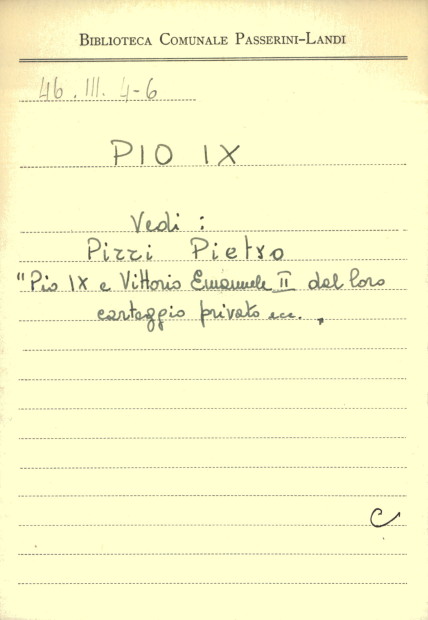 BIBLIOTECA COMUNALE PASSERINI-LANDI
46.III. 4-6
PIO IX
Vedi :
Pirri Pietro
"Pio IX e Vittorio Emanuele II dal loro
carteggio privato ecc. "
C